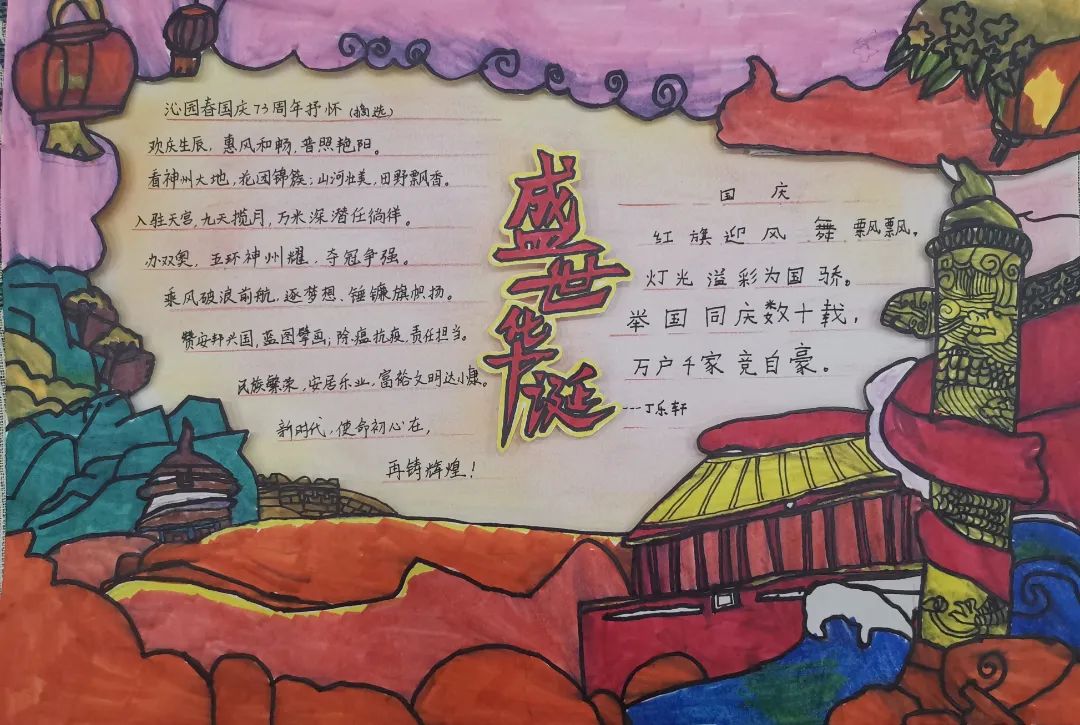 沁园春国庆73周年抒怀(摘选)
欢庆生辰，惠风和畅，普照艳阳。
看神州大地，花团锦簇；山河壮美，田野飘香。
入驻天宫，九天揽月，万米深潜任徜徉。
办双奥，五环神州耀，夺冠争强。
乘风破浪前航，逐梦想、锤镰旗帜扬。
赞安邦兴国，蓝图擘画；除瘟抗疫，责任担当。
民族繁荣，安居乐业，富裕文明达小康。
新时代，使命初心在，
再铸辉煌！
盛世华诞
国庆
红旗迎风舞飘飘，
灯光溢彩为国骄。
举国同庆数十载，
万户千家竞自豪。
---丁乐轩